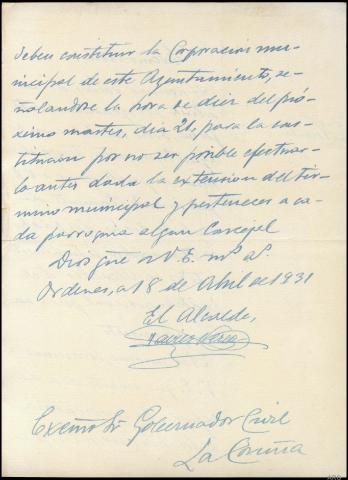 deben constituir la Corporacion mu-
nicipal de este Ayuntamiento, se-
ñalandose la hora de diez del pró-
ximo martes, dia 21, para la cons-
titucion por no ser posible efectuar-
lo antes dada la extension del tér-
mino municipal y pertenecer a ca-
da parroquia algun Concejal
Dios gue a V.E. ms as.
Ordenes, a 18 de Abril de 1931
El Alcalde,
Excmo Sr Gobernador Civil
La Coruña